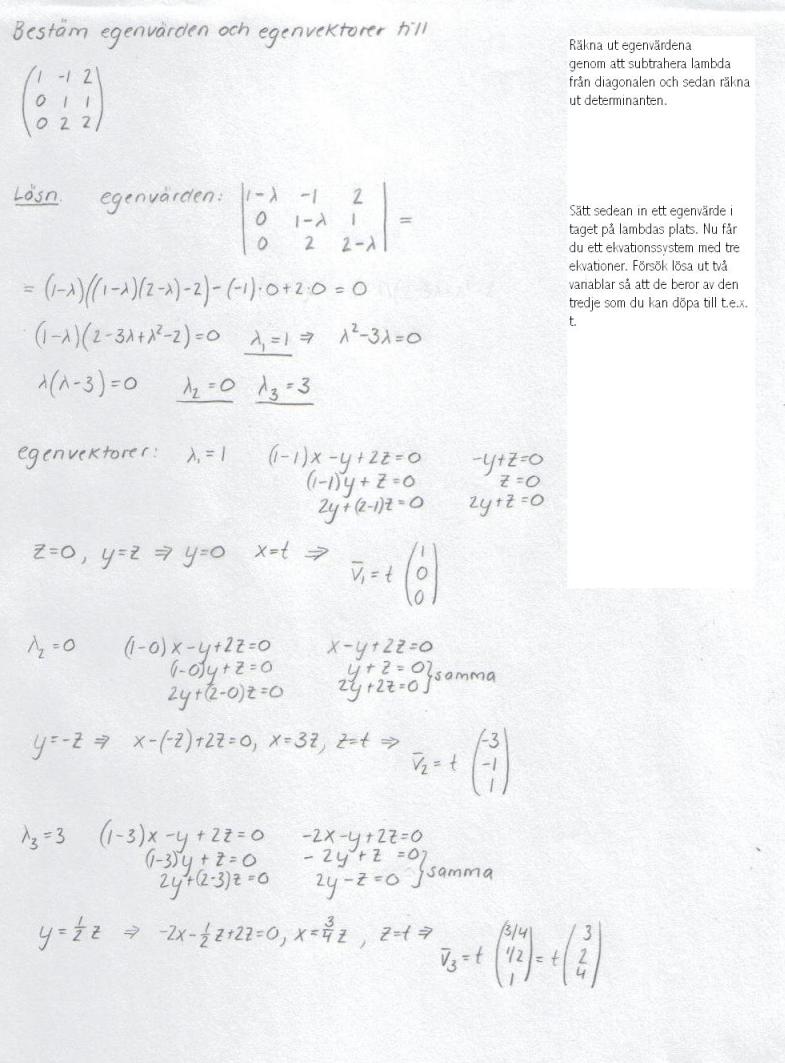 Bestäm egenvärden och egenvektorer till
(1 -1 2
0 1 1
0 2 2)
Lösn. egenvärden: |1-λ -1 2
0 1-λ 1
0 2 2-λ| =
= (1-λ)((1-λ)(2-λ)-2)-(-1)·0+2·0 = 0
(1-λ)(2-3λ+λ²-2)=0 λ₁=1 ⇒ λ²-3λ=0
λ(λ-3)=0 λ₂=0 λ₃=3
egenvektorer: λ₁=1 (1-1)x-y+2z=0 -y+z=0
(1-1)y+z=0 z=0
2y+(2-1)z=0 2y+z=0
z=0, y=z ⇒ y=0 x=t ⇒ v̄₁=t (1
0
0)
λ₂=0 (1-0)x-y+2z=0 x-y+2z=0
(1-0)y+z=0 y+z=0
2y+(2-0)z=0 2y+2z=0 } samma
y=-z ⇒ x-(-z)+2z=0, x=3z, z=t ⇒ v̄₂=t (-3
-1
1)
λ₃=3 (1-3)x-y+2z=0 -2x-y+2z=0
(1-3)y+z=0 -2y+z=0
2y+(2-3)z=0 2y-z=0 } samma
y=½z ⇒ -2x-½z+2z=0, x=¾z, z=t ⇒ v̄₃=t (3/4
1/2
1) = t (3
2
4)
Räkna ut egenvärdena
genom att subtrahera lambda
från diagonalen och sedan räkna
ut determinanten.
Sätt sedean in ett egenvärde i
taget på lambdas plats. Nu får
du ett ekvationssystem med tre
ekvationer. Försök lösa ut två
variablar så att de beror av den
tredje som du kan döpa till t.e.x.
t.